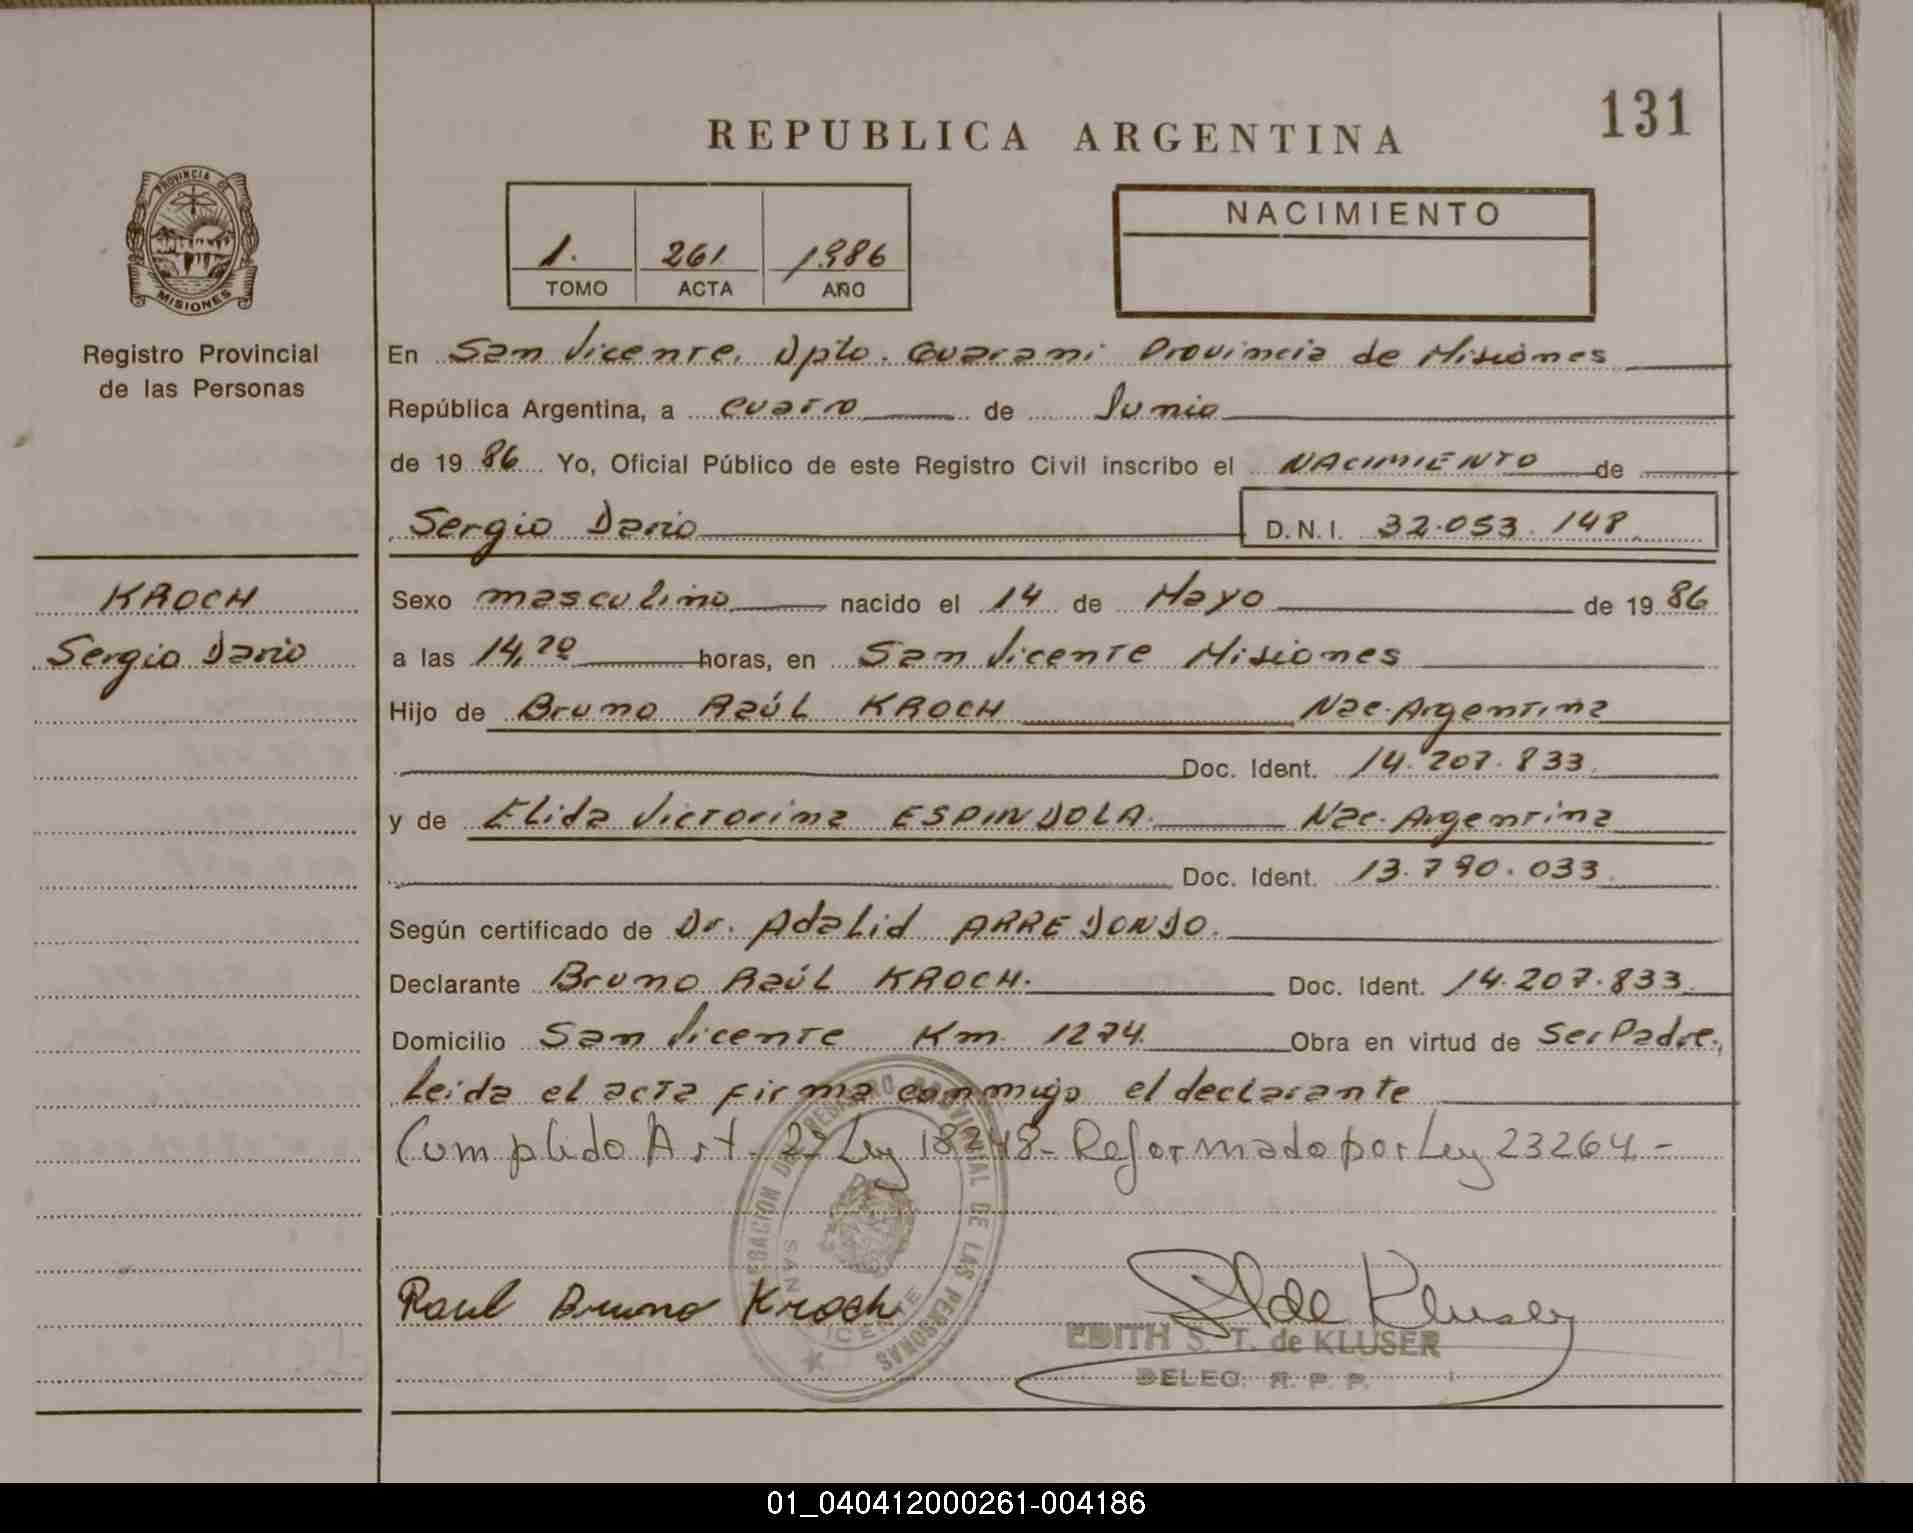 131
REPUBLICA ARGENTINA
PROVINCIA DE
MISIONES
Registro Provincial
de las Personas
1. 261 1986
TOMO ACTA AÑO
NACIMIENTO
En San Vicente, Dpto. Guarani Provincia de Misiones
República Argentina, a cuatro de Junio
de 19 86 Yo, Oficial Público de este Registro Civil inscribo el NACIMIENTO de
Sergio Dario D.N.I. 32.053.148
KROCH
Sergio Dario
Sexo masculino nacido el 14 de Mayo de 19 86
a las 14,20 horas, en San Vicente Misiones
Hijo de Bruno Raúl KROCH Nac. Argentina
Doc. Ident. 14.207.833
y de Elida Victorina ESPINDOLA. Nac. Argentina
Doc. Ident. 13.790.033
Según certificado de Dr. Adalid ARREDONDO.
Declarante Bruno Raúl KROCH. Doc. Ident. 14.207.833
Domicilio San Vicente Km 1274. Obra en virtud de Ser Padre,
Leida el acta firma conmigo el declarante
Cumplido Art. 2º Ley 18248- Reformado por Ley 23264.-
DELEGACION DEL REGISTRO PROVINCIAL DE LAS PERSONAS
SAN VICENTE
Raul Bruno Kroch
de Kluser
EDITH S. T. de KLUSER
DELEG. R. P. P.
01_040412000261-004186